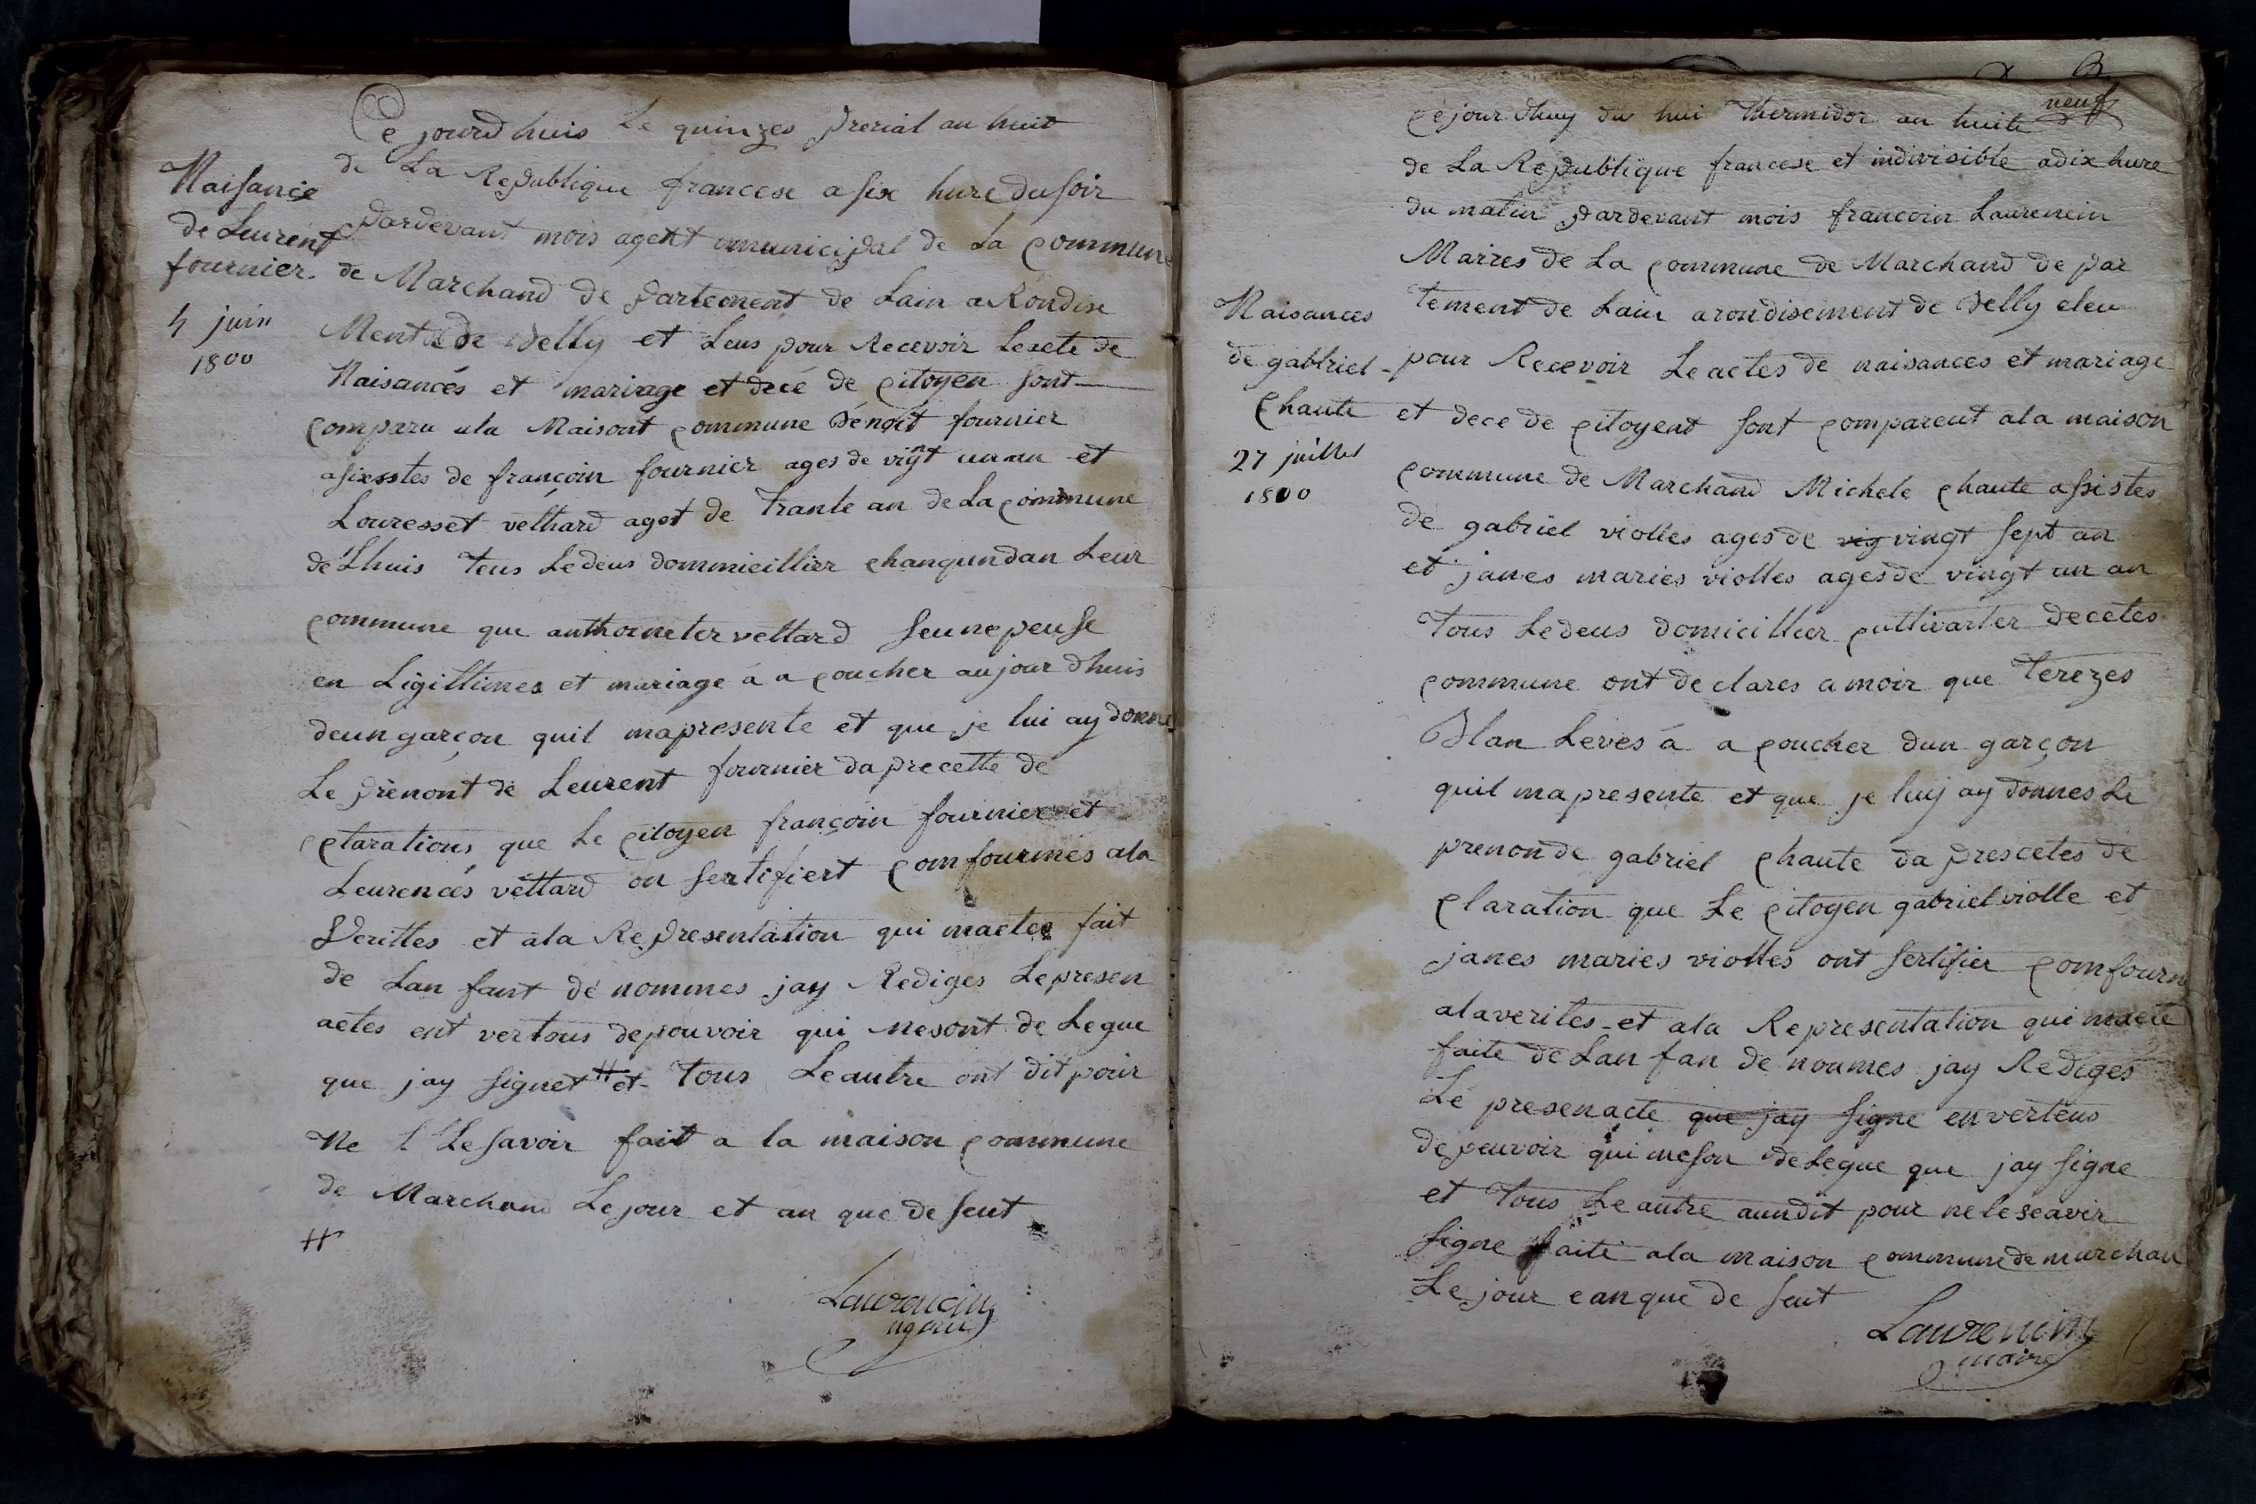 Ce jourdhuis Le quinzes Prerial an huit
de La Republique francese a six hure du soir
Naisance
de Leurent
fournier
4 juin
1800
pardevant mois agent municipal de La commune
de Marchand de partement de Lain a Rondise
Ment de Belly et Leus pour Recevoir Leacte de
Naisances et mariage et decé de citoyen sont
comparu ala Maisont commune Benoit fournier
asixsstes de françoin fournier ages de vignt un an et
Louresset velhard aget de trante an de La commune
de Lhuis tous Ledeus dommicillier chanqundan Leur
commune que anthoineter veltard seunepeuse
en Ligittimes et mariage á a coucher aujourdhuis
deun garçon quil mapresente et que je lui ay donne
Le prenont de Leurent fournier da precette de
clarations que Le citoyen françoin fournier et
Leurencés véttard on sertifiert comfourmes ala
Verittes et ala Representation qui maetee fait
de Lan fant dé nommes jay Rediges Lepresen
actes ent vertous depouvoir qui mesont de Legue
que jay signet # et tous Leautre ont dit pour
Ne l Lesavoir fait a la maison commune
de Marchand Lejour et an que de seut
#
Laurencin
agent
neuf
Cejourdhuy du hui Thermidor an huite
de La Republique francese et indivisible adix hure
du matin pardevant mois francoin Laurencin
Maires de La commune de Marchand de par
Naisances
de gabriel
Chaute
27 juillet
1800
tement de Lain arondisement de Belly eleu
pour Recevoir Leactes de naisances et mariage
et dece de citoyent sont comparent ala maison
commune de Marchand Michele chaute assistes
de gabriel violles ages de vig vingt sept an
et janes maries violles ages de vingt un an
tous Ledeus domicillier cultivarter decetes
commune ont declares a moir que Terezes
Blan Leves á a coucher dun garçon
quil mapresente et que je luy ay donnes Le
prenon de gabriel chaute da prescetes de
claration que Le citoyen gabriel violle et
janes maries violles ont sertifier comfourm
alaverites et ala Representation qui maete
faite de Lan fan de noumes jay Rediges
Le presenacte que jay signe enverteus
depeuvoir qui meson deLegue que jay signe
et tous Leautre aundit pour neleseavir
signe faite ala maison commune de marchan
Lejour eanque de seut
Laurencin
maire